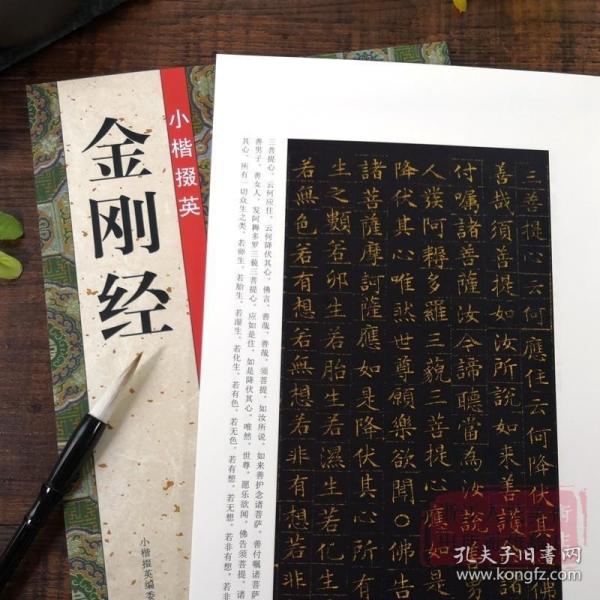 小楷掇英
金刚经
小楷掇英编委
三菩提心，云何应住，云何降伏其心。佛言，善哉，善哉，须菩提，如汝所说，如来善护念诸菩萨，善付嘱诸菩萨
善男子，善女人，发阿耨多罗三藐三菩提心，应如是住，如是降伏其心。唯然，世尊，愿乐欲闻。佛告须菩提，诸
其心，所有一切众生之类，若卵生，若胎生，若湿生，若化生，若有色，若无色，若有想，若无想，若非有想，若非
三菩提心云何應住云何降伏其
善哉須菩提如汝所說如來善護
付囑諸菩薩汝今諦聽當為汝說
人發阿耨多羅三藐三菩提心應如是
降伏其心唯然世尊願樂欲聞○佛告
諸菩薩摩訶薩應如是降伏其心所有
生之類若卵生若胎生若濕生若化生
若無色若有想若無想若非有想若非
孔夫子旧书网
www.kongfz.com